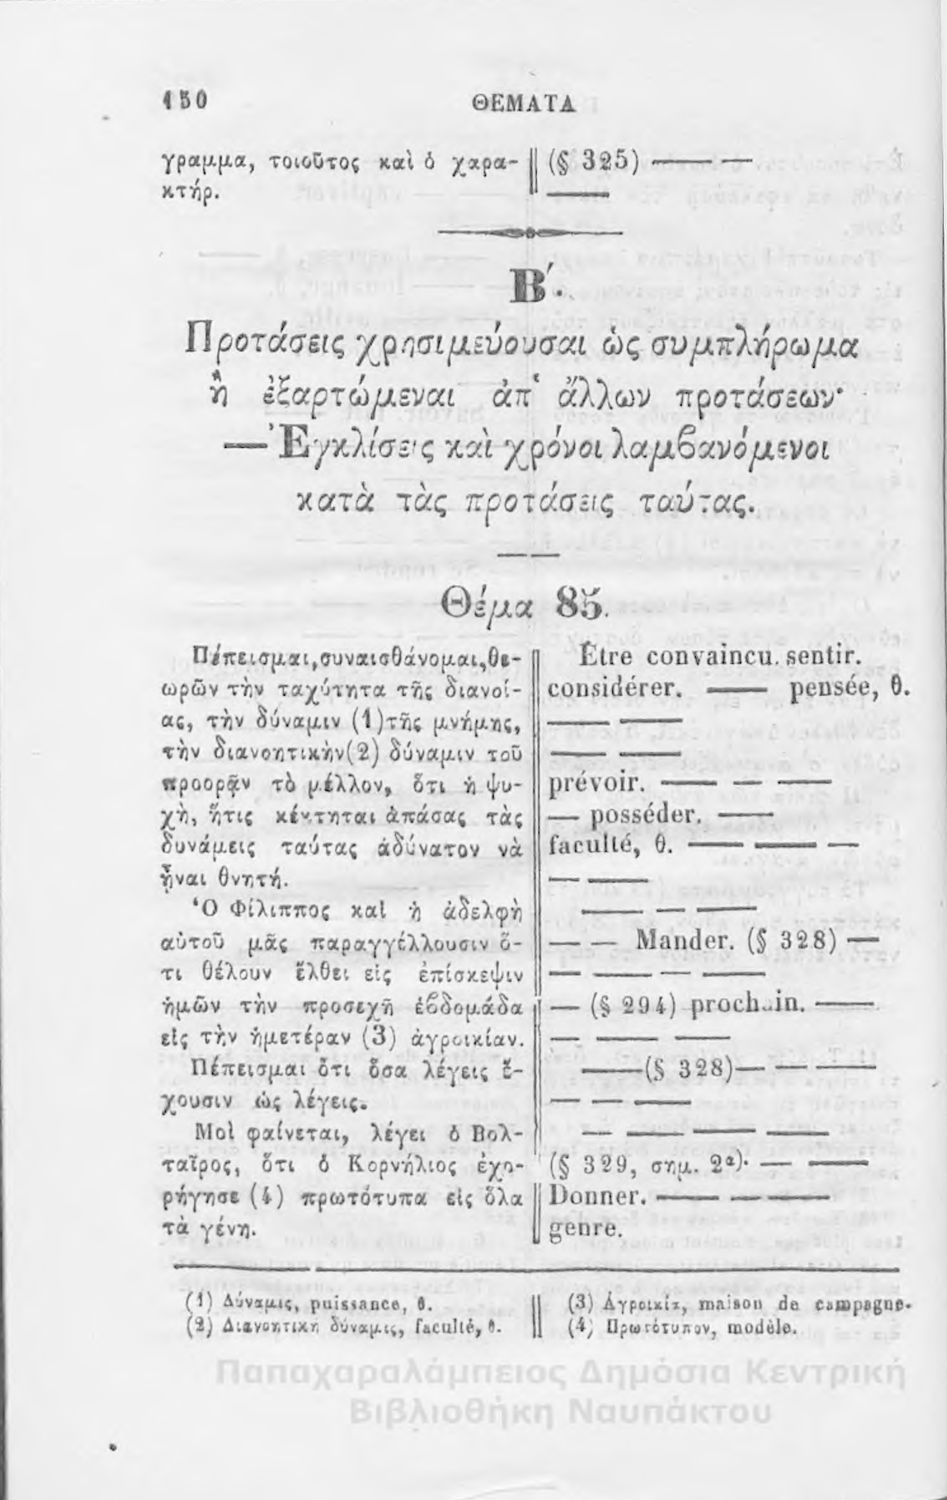 150 ΘΕΜΑΤΑ
γραμμα, τοιοῦτος καὶ ὁ χαρα- (§ 325) —— —
κτήρ. ——
Β΄.
Προτάσεις χρησιμεύουσαι ὡς συμπλήρωμα
ἢ ἐξαρτώμεναι ἀπ' ἄλλων προτάσεων·
— Ἐγκλίσεις καὶ χρόνοι λαμβανόμενοι
κατὰ τὰς προτάσεις ταύτας.
Θέμα 85.
Πέπεισμαι, συναισθάνομαι, θε-
ωρῶν τὴν ταχύτητα τῆς διανοί-
ας, τὴν δύναμιν (1) τῆς μνήμης,
τὴν διανοητικὴν (2) δύναμιν τοῦ
προορᾷν τὸ μέλλον, ὅτι ἡ ψυ-
χὴ, ἥτις κέκτηται ἁπάσας τὰς
δυνάμεις ταύτας ἀδύνατον νὰ
ἦναι θνητή.
Ὁ Φίλιππος καὶ ἡ ἀδελφὴ
αὐτοῦ μᾶς παραγγέλλουσιν ὅ-
τι θέλουν ἔλθει εἰς ἐπίσκεψιν
ἡμῶν τὴν προσεχῆ ἑβδομάδα
εἰς τὴν ἡμετέραν (3) ἀγροικίαν.
Πέπεισμαι ὅτι ὅσα λέγεις ἔ-
χουσιν ὡς λέγεις.
Μοὶ φαίνεται, λέγει ὁ Βολ-
ταῖρος, ὅτι ὁ Κορνήλιος ἐχο-
ρήγησε (4) πρωτότυπα εἰς ὅλα
τὰ γένη.
Être convaincu. sentir.
considérer. —— pensée, θ.
—— ——
—— ——
prévoir. —— — ——
— posséder. ——
faculté, θ. —— —— —
— ——
—— — ——
— — Mander. (§ 328) —
— —— — ——
— (§ 294) prochain. ——
— —— ——
——(§ 328)— — ——
— — ——
— —— —— ——
(§ 329, σημ. 2α)· — ——
Donner. —— — ——
genre.
(1) Δύναμις, puissance, θ.
(2) Διανοητικὴ δύναμις, faculté, θ.
(3) Ἀγροικία, maison de campagne.
(4) Πρωτότυπον, modèle.
Παπαχαραλάμπειος Δημόσια Κεντρική
Βιβλιοθήκη Ναυπάκτου